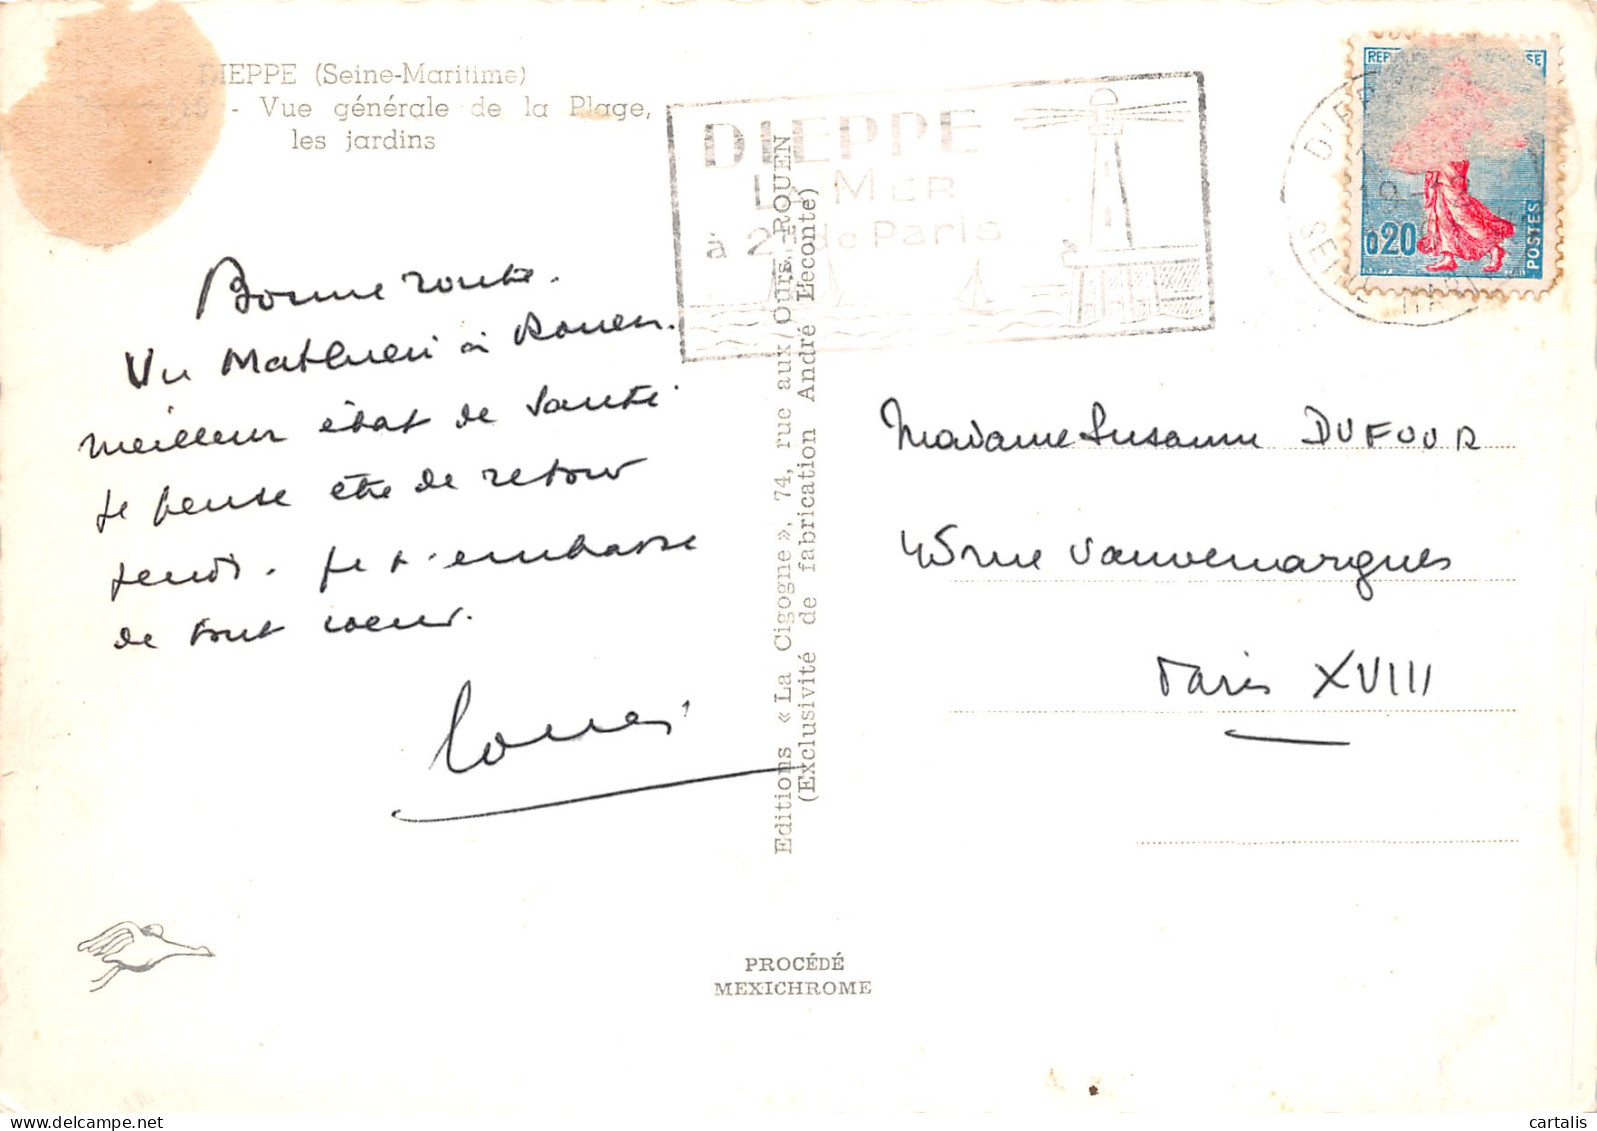 DIEPPE (Seine-Maritime)
- Vue générale de la Plage,
les jardins
DIEPPE
LA MER
à 2 de Paris
DIEPPE
SEINE
0,20
POSTES
Bonne route.
Vu Mathieu à Rouen.
meilleur état de santé
je pense être de retour
jeudi. je t'embrasse
de tout coeur.
Editions « La Cigogne », 74, rue aux Ours, ROUEN
(Exclusivité de fabrication André Leconte)
Madame Susanne DUFOUR
45 rue Vauvenargues
Paris XVIII
PROCÉDÉ
MEXICHROME
cartalis